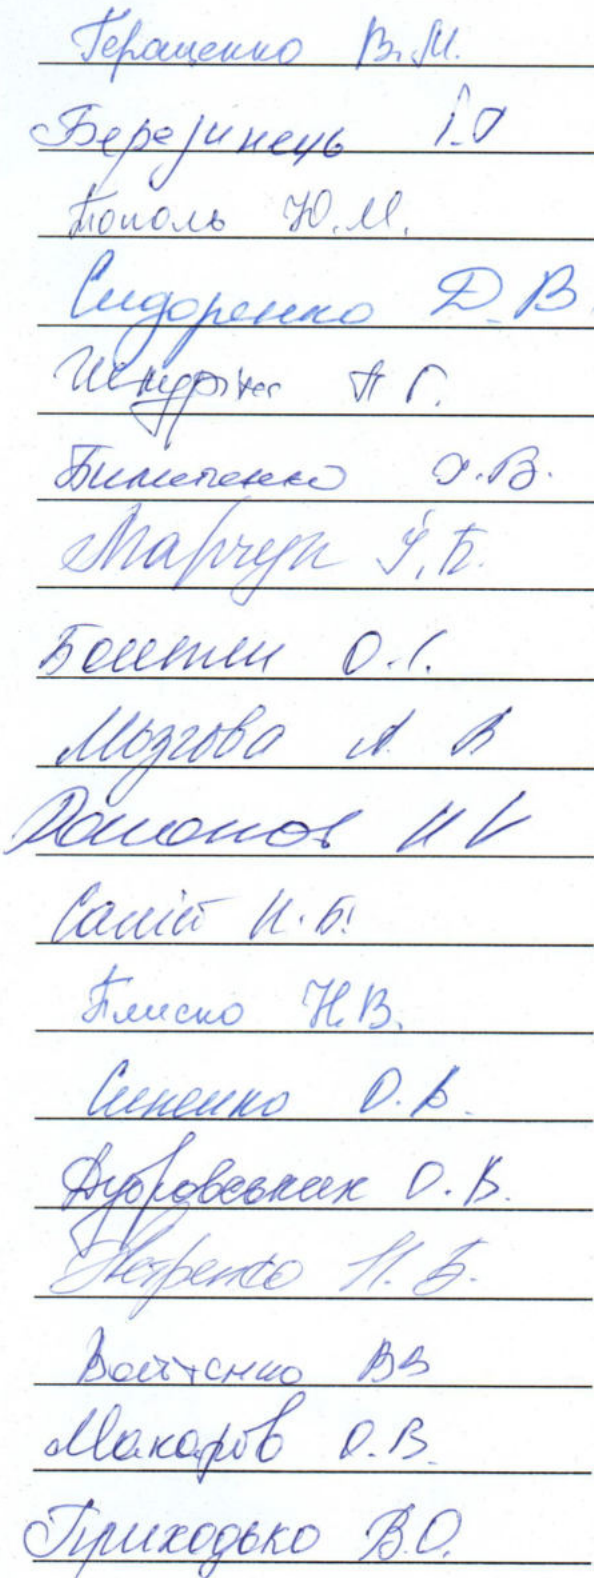 Геращенко В.М.
Березинець І.О
Тополь Ю.М.
Сидоренко Д.В
А Г.
Билиненко О.В.
Марчук І.Б.
О.І.
Мызгова А. В
Романов И И
Саміт И.Б.
Плиско Н.В.
Синенко О.В.
Дубровський О.В.
Петренко Н.Б.
Войтенко ВВ
Макаров О.В.
Приходько В.О.